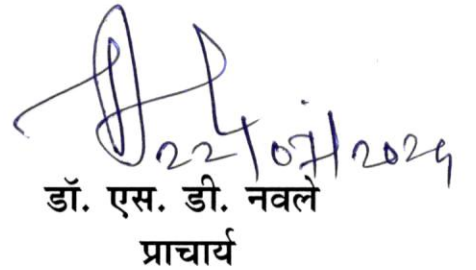 22/07/2024
डॉ. एस. डी. नवले
प्राचार्य